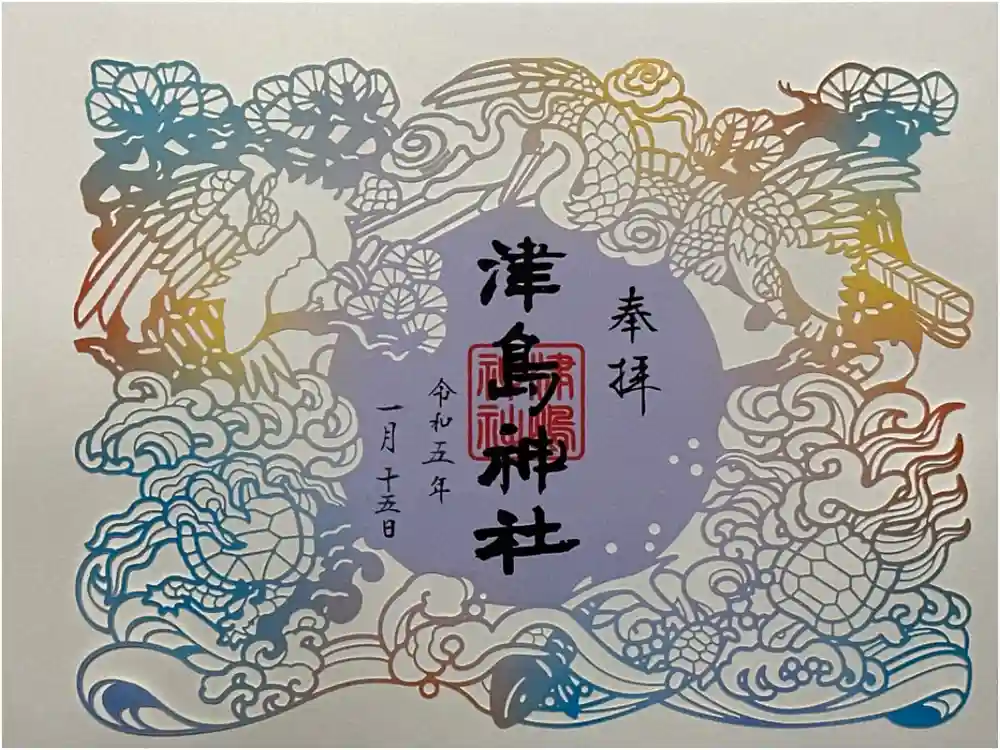 奉拝
津島神社
津島神社
令和五年
一月十五日